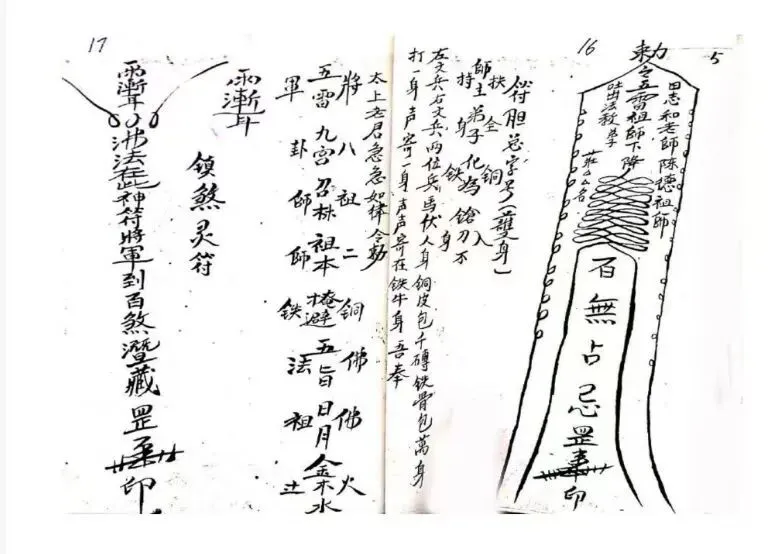 16
5
勅令五雷祖師下降
田志和老師陳德祖師
吐出法教弟子
百無占忌罡
印
符胆总字号(護身)
扶持
師主弟子化為鎗刀不
全身
銅鉄
入身
左文兵右文兵兩位兵馬伏人身銅皮包千磚鉄骨包萬身
打一身声寄一身声声寄在鉄牛身吾奉
太上老君急急如律令勅
將八祖二銅佛佛火
五雷九宫召林祖本掩避五旨日月金木水
軍卦師師鉄法祖土
17
雨漸耳
鎮煞灵符
雨漸耳
佛法在此神符將軍到百煞潛藏罡
印